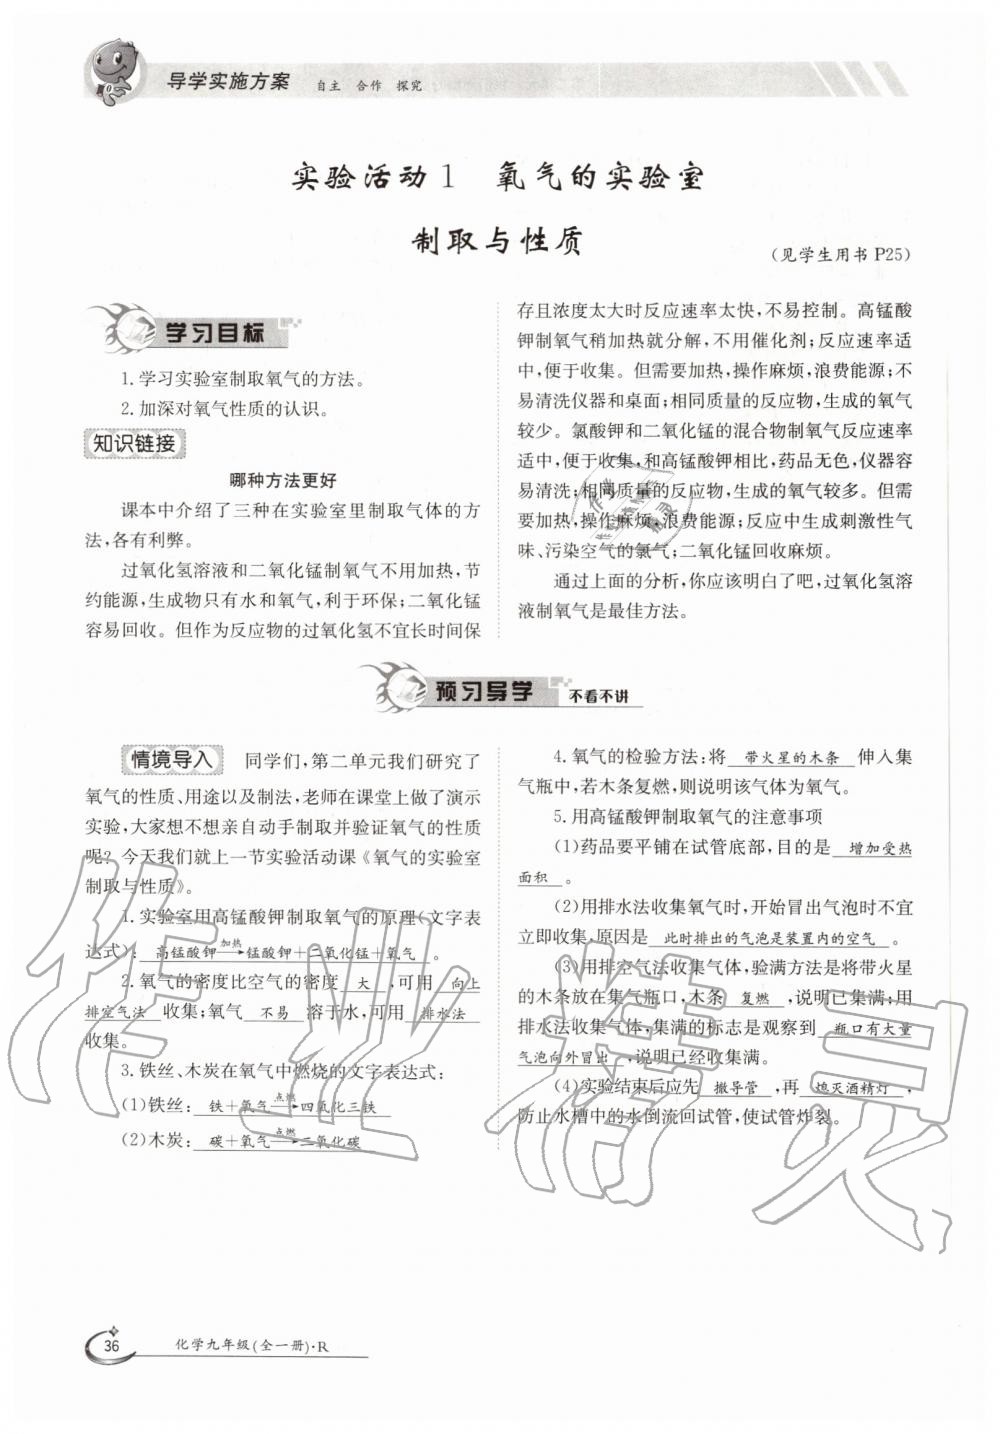 导学实施方案 自主 合作 探究
实验活动1 氧气的实验室
制取与性质
(见学生用书 P25)
学习目标
1.学习实验室制取氧气的方法。
2.加深对氧气性质的认识。
知识链接
哪种方法更好
课本中介绍了三种在实验室里制取气体的方
法,各有利弊。
过氧化氢溶液和二氧化锰制氧气不用加热,节
约能源,生成物只有水和氧气,利于环保;二氧化锰
容易回收。但作为反应物的过氧化氢不宜长时间保
存且浓度太大时反应速率太快,不易控制。高锰酸
钾制氧气稍加热就分解,不用催化剂;反应速率适
中,便于收集。但需要加热,操作麻烦,浪费能源;不
易清洗仪器和桌面;相同质量的反应物,生成的氧气
较少。氯酸钾和二氧化锰的混合物制氧气反应速率
适中,便于收集,和高锰酸钾相比,药品无色,仪器容
易清洗;相同质量的反应物,生成的氧气较多。但需
要加热,操作麻烦,浪费能源;反应中生成刺激性气
味、污染空气的氯气;二氧化锰回收麻烦。
通过上面的分析,你应该明白了吧,过氧化氢溶
液制氧气是最佳方法。
预习导学 不看不讲
情境导入 同学们,第二单元我们研究了
氧气的性质、用途以及制法,老师在课堂上做了演示
实验,大家想不想亲自动手制取并验证氧气的性质
呢?今天我们就上一节实验活动课《氧气的实验室
制取与性质》。
1.实验室用高锰酸钾制取氧气的原理(文字表
达式): 高锰酸钾 加热→ 锰酸钾+二氧化锰+氧气 。
2.氧气的密度比空气的密度 大 ,可用 向上
排空气法 收集;氧气 不易 溶于水,可用 排水法
收集。
3.铁丝、木炭在氧气中燃烧的文字表达式:
(1)铁丝: 铁+氧气 点燃→ 四氧化三铁
(2)木炭: 碳+氧气 点燃→ 二氧化碳
4.氧气的检验方法:将 带火星的木条 伸入集
气瓶中,若木条复燃,则说明该气体为氧气。
5.用高锰酸钾制取氧气的注意事项
(1)药品要平铺在试管底部,目的是 增加受热
面积 。
(2)用排水法收集氧气时,开始冒出气泡时不宜
立即收集,原因是 此时排出的气泡是装置内的空气 。
(3)用排空气法收集气体,验满方法是将带火星
的木条放在集气瓶口,木条 复燃 ,说明已集满;用
排水法收集气体,集满的标志是观察到 瓶口有大量
气泡向外冒出 ,说明已经收集满。
(4)实验结束后应先 撤导管 ,再 熄灭酒精灯 ,
防止水槽中的水倒流回试管,使试管炸裂。
作业精灵
36 化学九年级(全一册)·R